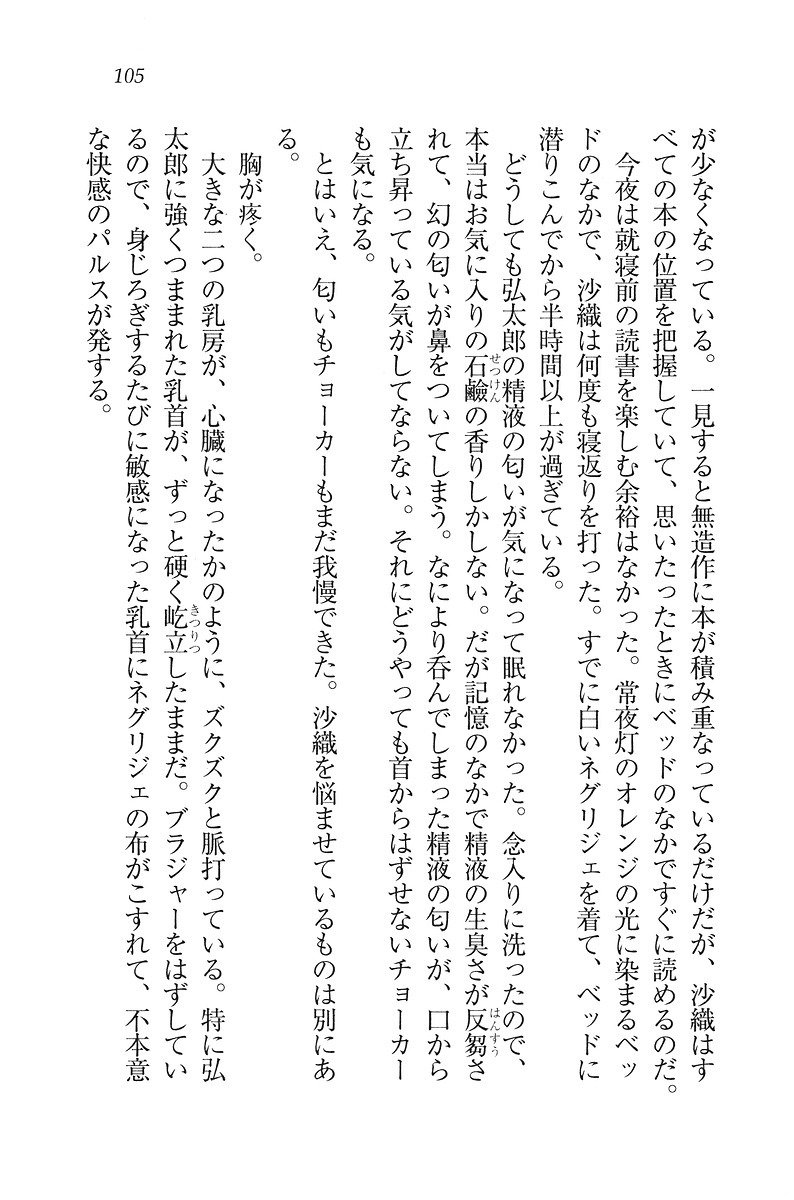 105
が少なくなっている。一見すると無造作に本が積み重なっているだけだが、沙織はす
べての本の位置を把握していて、思いたったときにベッドのなかですぐに読めるのだ。
今夜は就寝前の読書を楽しむ余裕はなかった。常夜灯のオレンジの光に染まるベッ
ドのなかで、沙織は何度も寝返りを打った。すでに白いネグリジェを着て、ベッドに
潜りこんでから半時間以上が過ぎている。
どうしても弘太郎の精液の匂いが気になって眠れなかった。念入りに洗ったので、
せっけん
はんすう
本当はお気に入りの石鹼の香りしかしない。だが記憶のなかで精液の生臭さが反芻さ
れて、幻の匂いが鼻をついてしまう。なにより呑んでしまった精液の匂いが、口から
立ち昇っている気がしてならない。それにどうやっても首からはずせないチョーカー
も気になる。
とはいえ、匂いもチョーカーもまだ我慢できた。沙織を悩ませているものは別にあ
る。
胸が疼く。
大きな二つの乳房が、心臓になったかのように、ズクズクと脈打っている。特に弘
きつりつ
太郎に強くつままれた乳首が、ずっと硬く屹立したままだ。ブラジャーをはずしてい
るので、身じろぎするたびに敏感になった乳首にネグリジェの布がこすれて、不本意
な快感のパルスが発する。